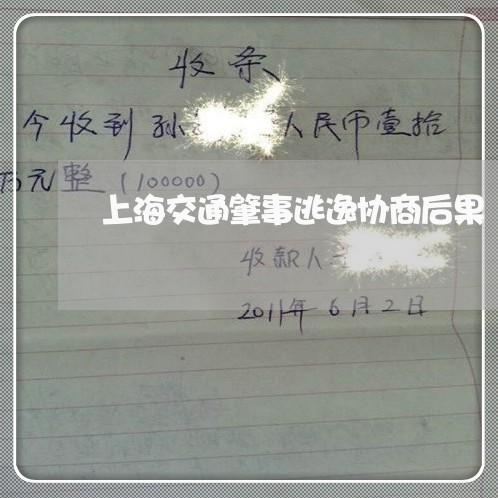 收条
今收到孙 人民币壹拾
万元整(100000)
上海交通肇事逃逸协商后果
收款人
2011年6月2日